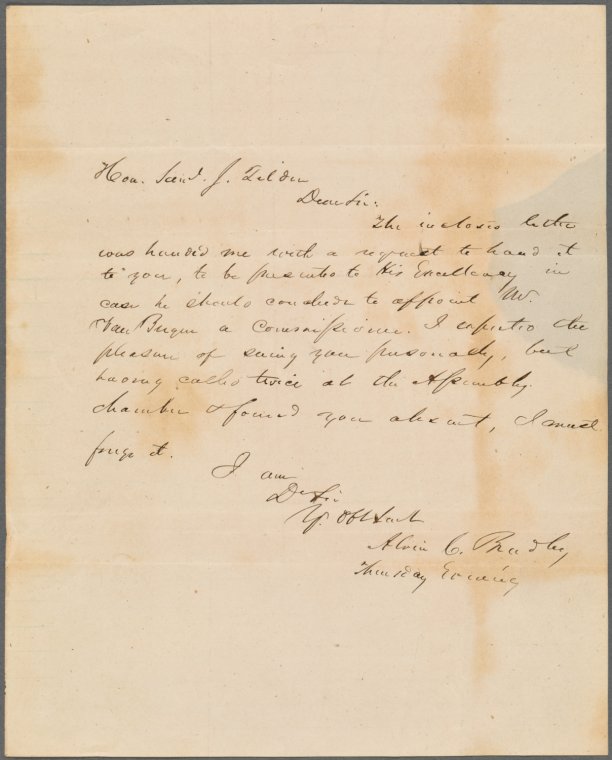 Hon. Saml. J. Tilden
Dear Sir:
The inclosed letter
was handed me with a request to hand it
to you, to be presented to His Excellency in
case he should conclude to appoint Mr.
Van Buren a Commissioner. I expected the
pleasure of seeing you personally, but
having called twice at the Assembly
chamber & found you absent, I must
forgo it.
I am
Dr Sir
Yr. Obt Servt
Alvin C. Bradley
Thursday Evening